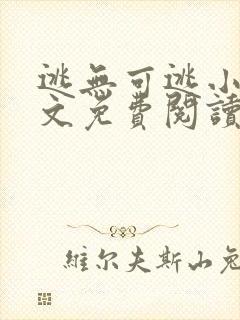 逃無可逃小
文免費閱讀
維尔夫斯山兔